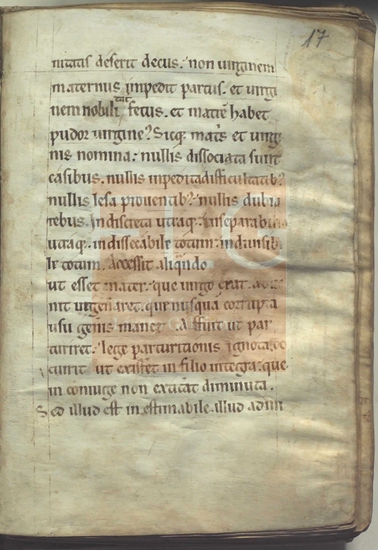 17
nitatis deserit decus. non uirginem
maternus impedit partus. et uirgi
nem nobilitat fetus. et matrē habet
pudor uirgine? Sicq; matˢ et uirgi
nis nomina. nullis dissociata sunt
casibus. nullis inpedita difficultatib;
nullis lesa prouentib; nullis dubiis
rebus. indiscreta utraq;. inseparabilia
utraq;. indissecabile totum. indiuisibi
le totum. Accessit aliqndo
ut esset mater. que uirgo erat.
nit ut gen̄aret. que nusquā corrupta
usu genis manet. Affuit ut par
turiret. lege parturitionis ignota.
currit ut existet in filio integra. que
in coniuge non extitit diminuta.
Sed illud est inestimabile. illud admi